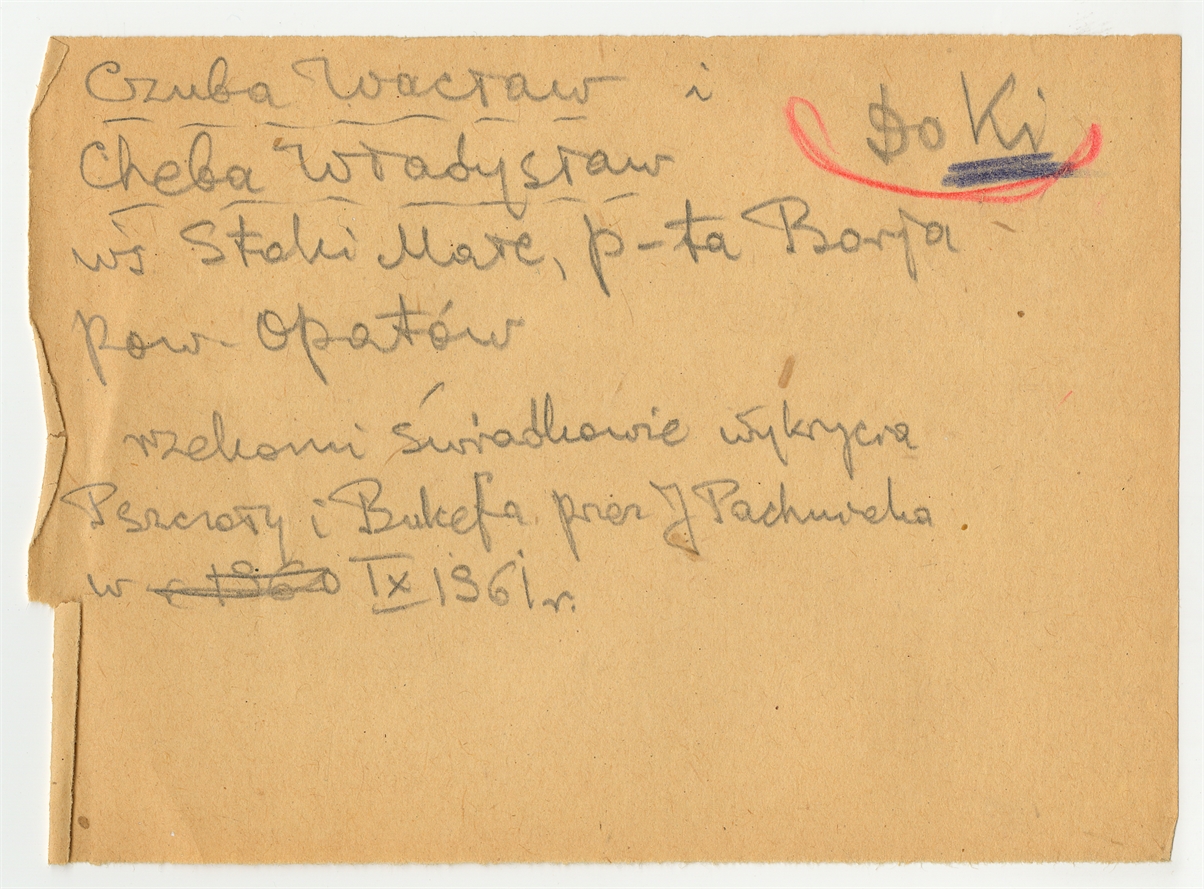 Czuba Wacław i
Do Ki
Cheba Władysław
wś Stoki Małe, p-ta Borja
pow. Opatów
rzekomi świadkowie wykrycia
Pszczoły i Bukefa przez J Pachuwka
w IX 1961 r.